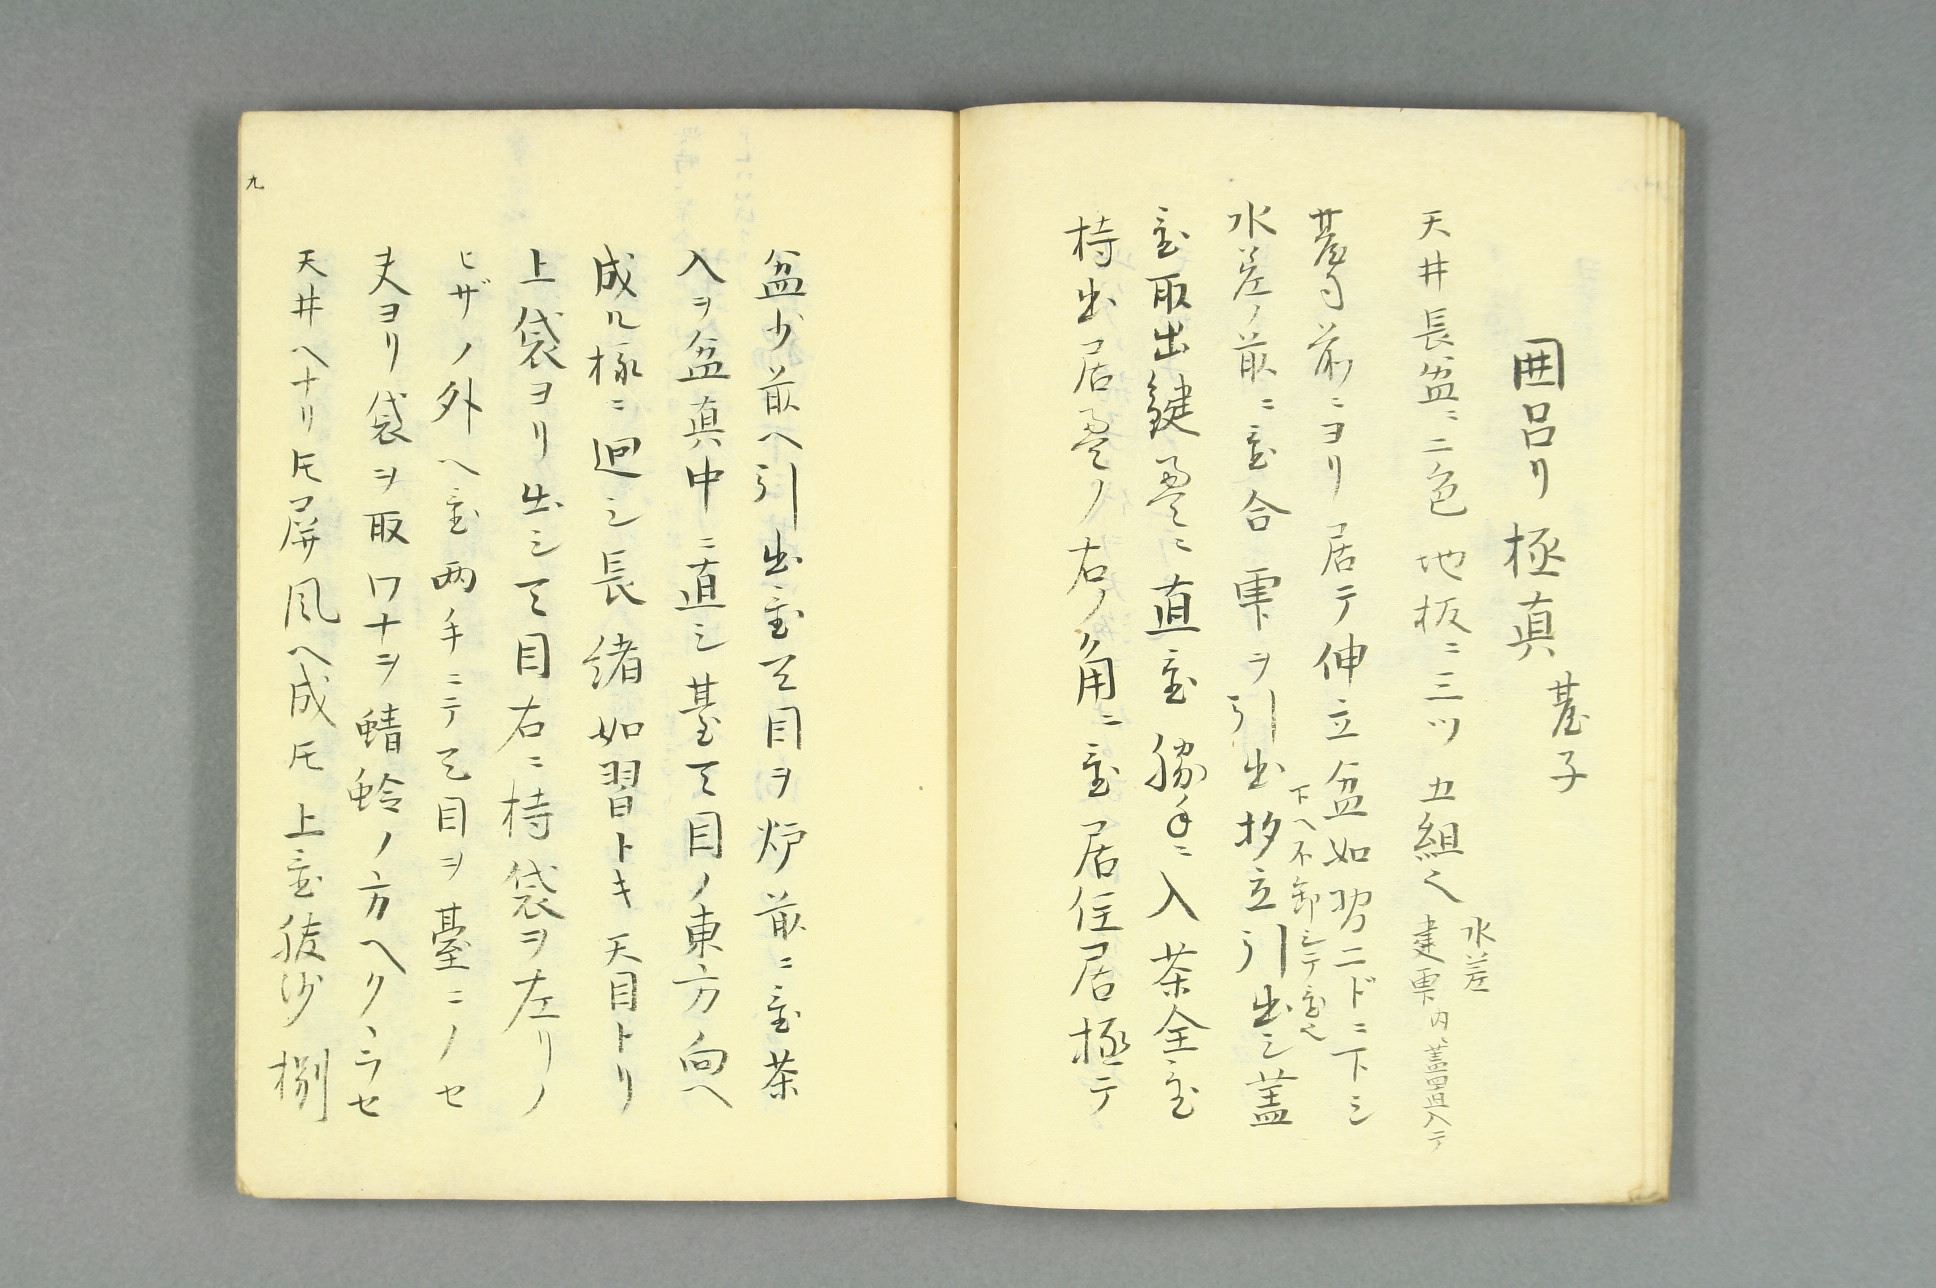 囲呂リ極真
臺子
天井長盆ニ二色地板ニ三ツ五組ヘ
水差
建雫内ヘ蓋置入テ
臺子前ニヨリ居テ伸立盆如習二ドニ下シ
下ヘ不卸シテ置也
水差ノ前ニ置合雫ヲ引出杓立引出シ蓋
置取出鍵畳ニ直置勝手ニ入茶全置
持出居畳ノ右ノ角ニ置居住居極テ
盆少前ヘ引出置天目ヲ炉前ニ置茶
入ヲ盆真中ニ直シ臺天目ノ東方向ヘ
成ル様ニ廻シ長緒如習トキ天目トリ
上袋ヨリ出シ天目右ニ持袋ヲ左リノ
ヒザノ外ヘ置両手ニテ天目ヲ臺ニノセ
夫ヨリ袋ヲ取ワナヲ蜻蛉ノ方ヘクヽラセ
天井ヘナリ𪜈屏風ヘ成𪜈上置服沙捌
九